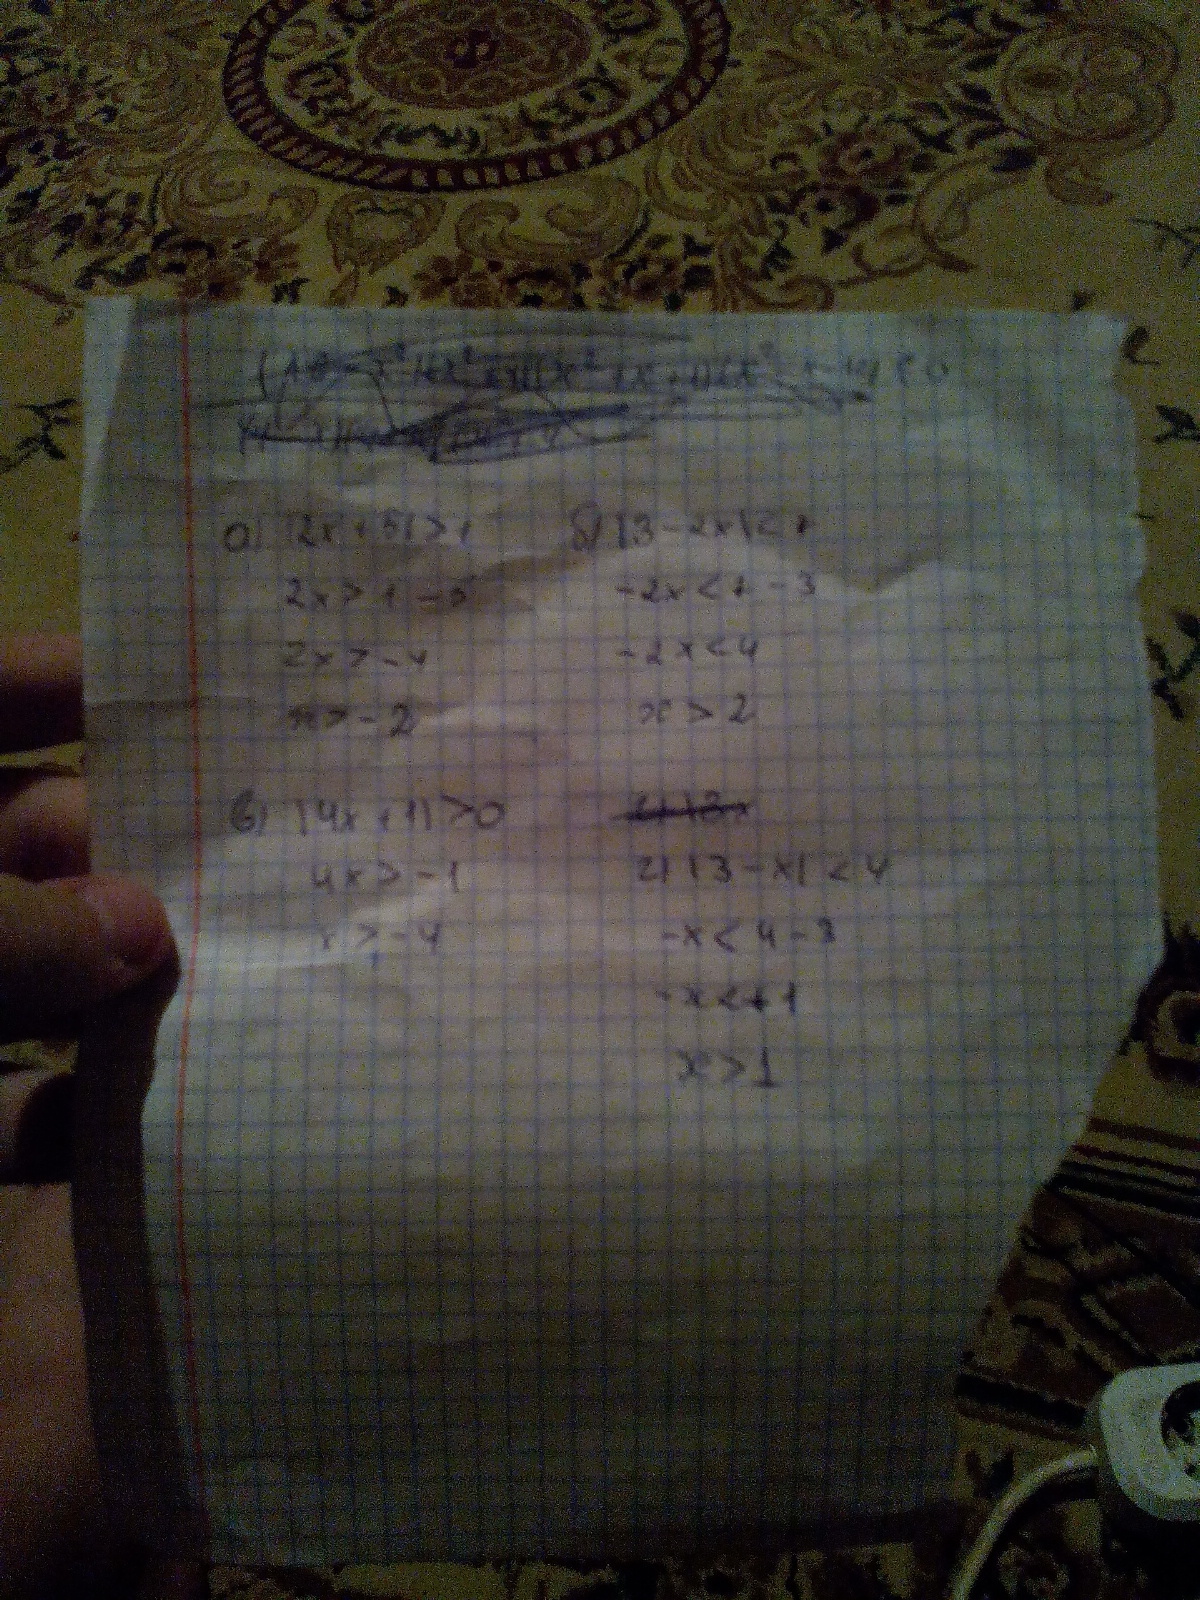 а) |2x + 5| > 1
2x > 1 - 5
2x > -4
x > -2
б) |3 - 2x| <
-2x < - 3
-2x < 4
x > 2
в) |4x + 1| > 0
4x > -1
x > -4
г) |3 - x| < 4
-x < 4 - 3
-x < +1
x > 1